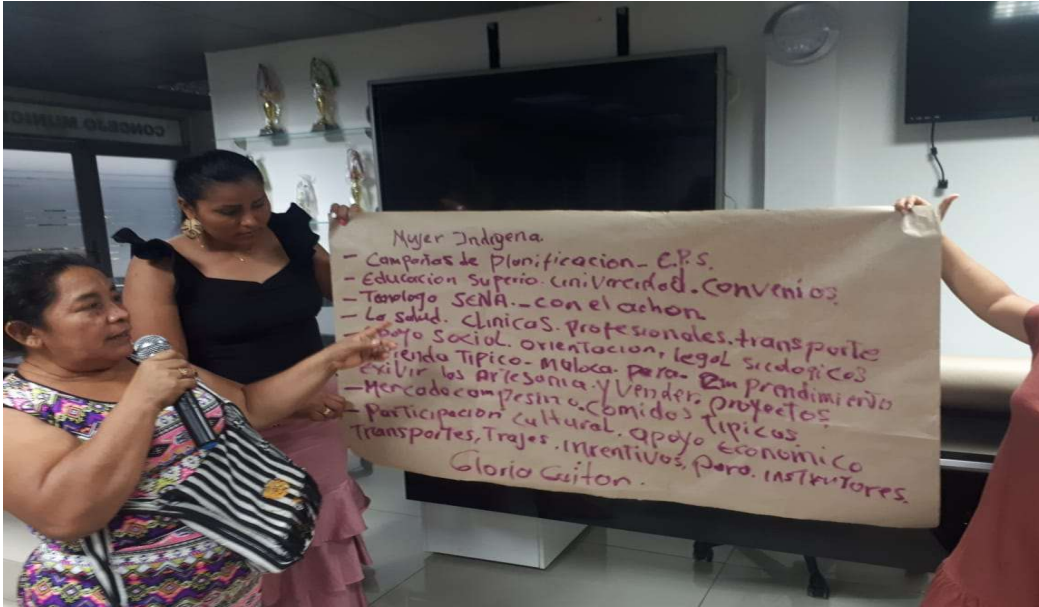 CONCEJO MUNICI
Mujer Indigena.
- Campañas de Planificacion - E.P.S.
- Educacion Superio. Univercidad. Convenios.
- Tecnologo SENA. - con el
- La salud. Clinicas. profesionales. transporte
Social. orientacion, legal sicologicos
Tipico - Maloca. para. Emprendimiento
exivir las Artesania. y Vender. proyectos
- Mercado campesino. Comidas Tipicas
- Participacion Cultural. apoyo Economico
Transportes, Trajes. incentivos, para. instrutores.
Gloria